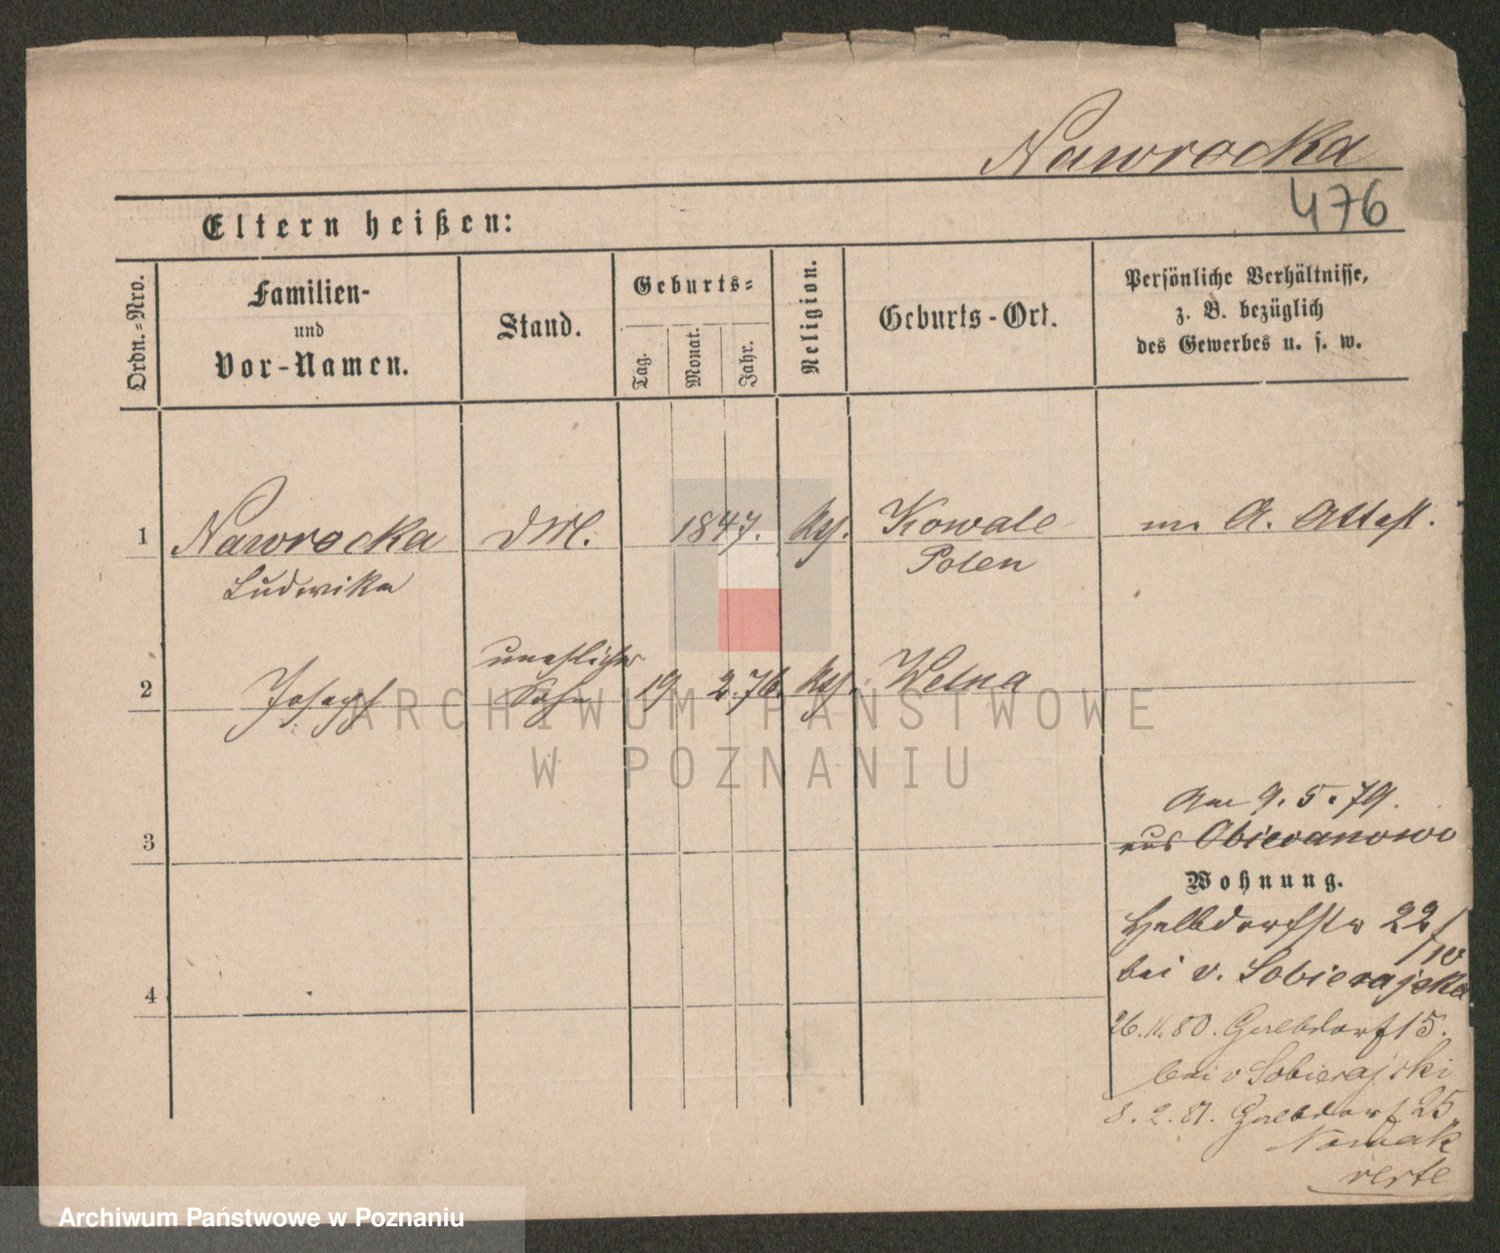 Nawrocka
476
Eltern heißen:
Ordn.-Nro.
Familien-
und
Vor-Namen.
Stand.
Geburts-
Tag.
Monat.
Jahr.
Religion.
Geburts-Ort.
Persönliche Verhältnisse,
z. B. bezüglich
des Gewerbes u. s. w.
1 Nawrocka DM. 1847. kth. Kowale A. Attest.
Ludwika Polen
unehlicher
2 Joseph Sohn 19 2.76. kth. Welna
ARCHIWUM PAŃSTWOWE
W POZNANIU
Am 9. 5. 79.
3 aus Obiezanowo
Wohnung.
Halbdorfstr 22/IV
bei v. Sobierajska
4
26. 11. 80. Halbdorf 15.
bei v Sobierajski
8. 2. 81. Halbdorf 25
Nowak
verte
Archiwum Państwowe w Poznaniu